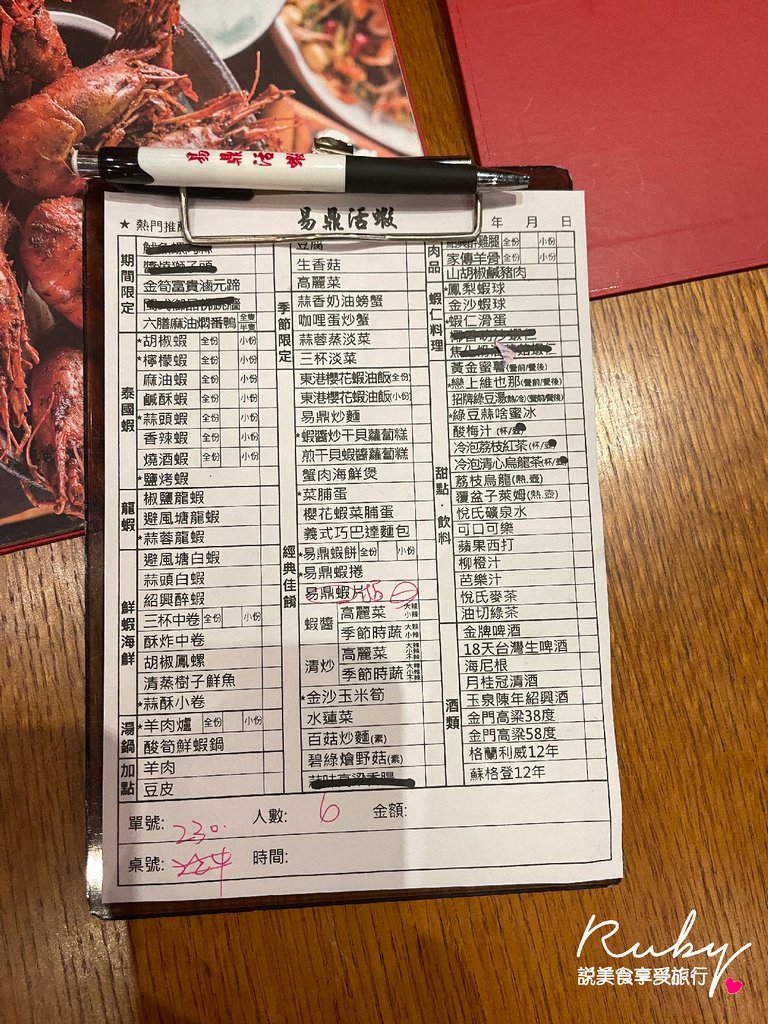 易鼎活蝦
易鼎活蝦
★ 熱門推
年 月 日
期間限定
金筍富貴滷元蹄
六膳麻油燜番鴨 全隻 半隻
泰國蝦
*胡椒蝦 全份 小份
*檸檬蝦 全份 小份
麻油蝦 全份 小份
鹹酥蝦 全份 小份
*蒜頭蝦 全份 小份
香辣蝦 全份 小份
燒酒蝦 全份 小份
*鹽烤蝦
龍蝦
椒鹽龍蝦
避風塘龍蝦
*蒜蓉龍蝦
鮮蝦海鮮
避風塘白蝦
蒜頭白蝦
紹興醉蝦
*三杯中卷 全份 小份
酥炸中卷
胡椒鳳螺
清蒸樹子鮮魚
*蒜酥小卷
湯鍋
*羊肉爐 全份 小份
酸筍鮮蝦鍋
加點
羊肉
豆皮
季節限定
豆腐
生香菇
高麗菜
蒜香奶油螃蟹
咖哩蛋炒蟹
蒜蓉蒸淡菜
三杯淡菜
東港櫻花蝦油飯(全份)
東港櫻花蝦油飯(小份)
經典佳餚
易鼎炒麵
*蝦醬炒干貝蘿蔔糕
煎干貝蝦醬蘿蔔糕
蟹肉海鮮煲
*菜脯蛋
櫻花蝦菜脯蛋
義式巧巴達麵包
*易鼎蝦餅 全份 小份
*易鼎蝦捲
易鼎蝦片
蝦醬 高麗菜 大辣 小辣
季節時蔬 大辣 小辣
清炒 高麗菜
季節時蔬
*金沙玉米筍
水蓮菜
百菇炒麵(素)
碧綠燴野菇(素)
肉品
紹興醉雞腿 全份 小份
家傳羊骨 全份 小份
山胡椒鹹豬肉
蝦仁料理
*鳳梨蝦球
金沙蝦球
*蝦仁滑蛋
甜點．飲料
黃金蜜薯(餐前/餐後)
*戀上維也那(餐前/餐後)
招牌綠豆湯(熱/冷)(餐前/餐後)
*綠豆蒜啥蜜冰
酸梅汁(杯/壺)
冷泡荔枝紅茶(杯/壺)
冷泡清心烏龍茶(杯/壺)
荔枝烏龍(熱.壺)
覆盆子萊姆(熱.壺)
悅氏礦泉水
可口可樂
蘋果西打
柳橙汁
芭樂汁
悅氏麥茶
油切綠茶
酒類
金牌啤酒
18天台灣生啤酒
海尼根
月桂冠清酒
玉泉陳年紹興酒
金門高粱38度
金門高粱58度
格蘭利威12年
蘇格登12年
單號: 230. 人數: 6 金額:
桌號: 時間:
Ruby
說美食享受旅行